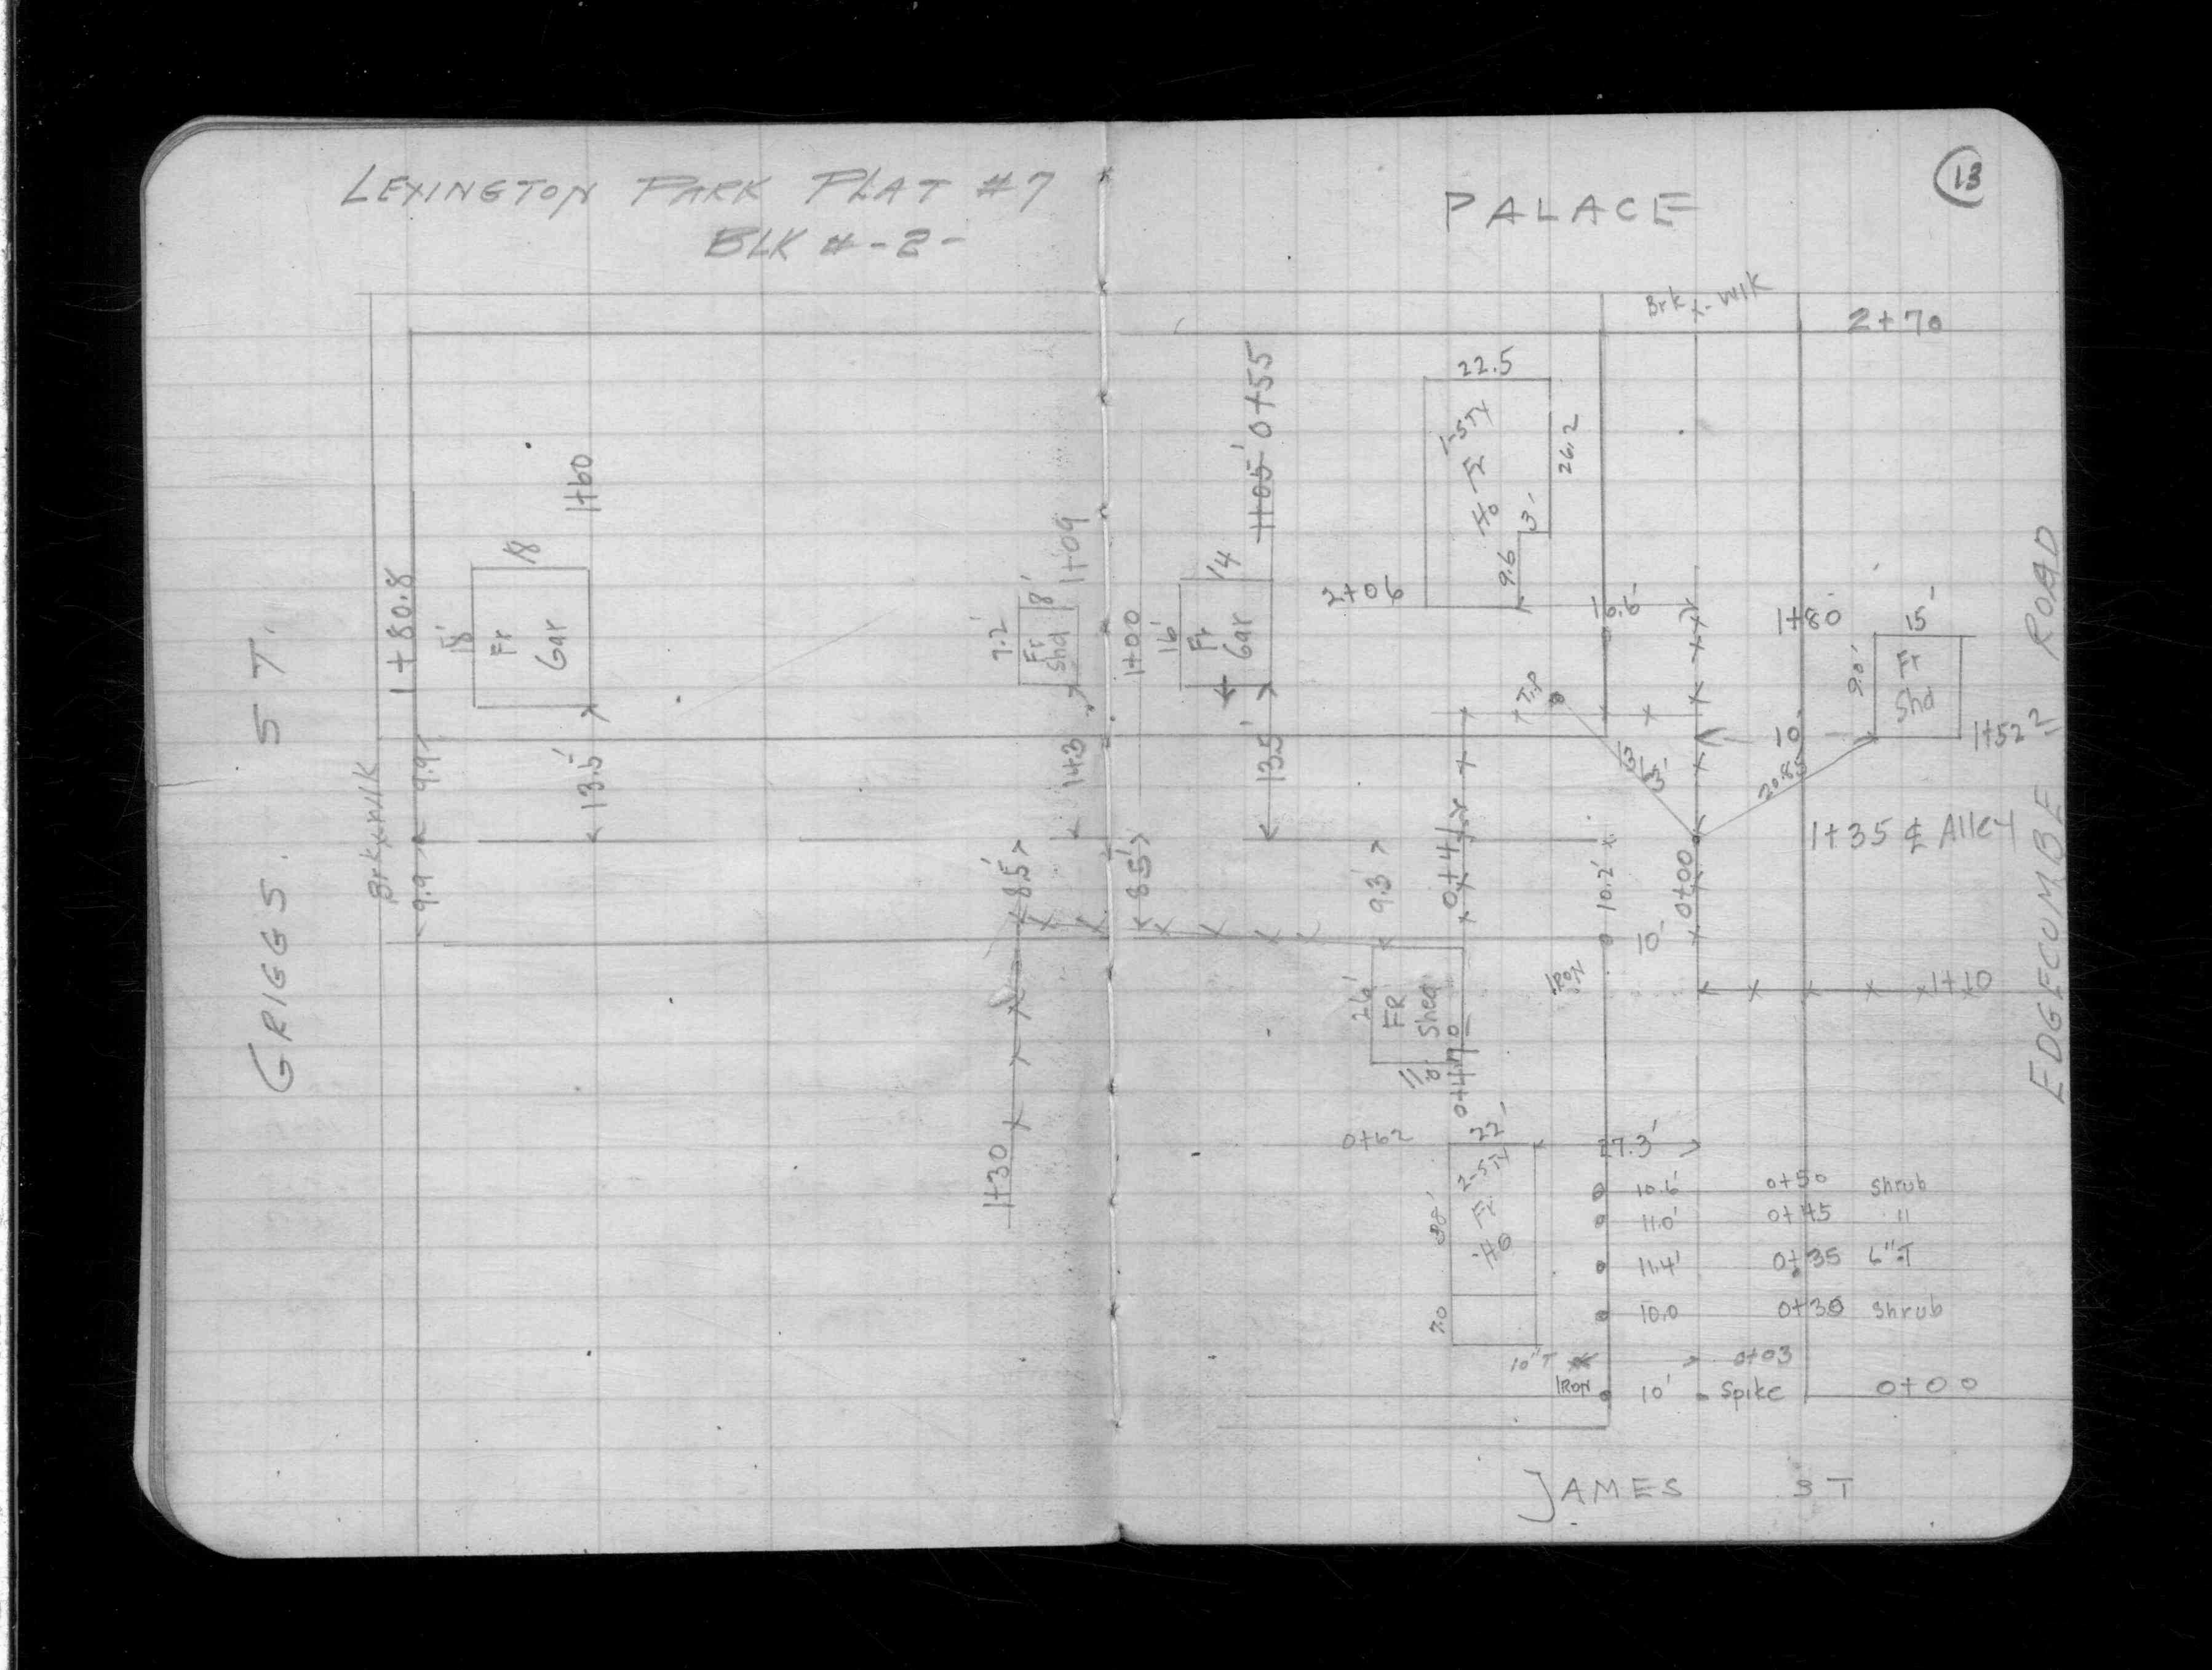 LEXINGTON PARK PLAT #7
BLK # -2-
GRIGGS ST.
Brk x wlk
1+80.8
9.9
9.9
18'
18
Fr
Gar
1+60
13.5'
Fr
Shd
8'
1+09
14.3
8.5'
1+30
13
PALACE
Brk x-wlk
2+70
22.5
1-STY
Fr
Ho
26.2
3'
9.6
2+06
1+05' 0+55
1+00
16'
14
Fr
Gar
13.5'
8.5'
T.P
1+80
15'
9.0'
Fr
Shd
1+52
10
13'
20.85
1+35 ₵ Alley
EDGECUMBE ROAD
9.3'
10.2'
0+00
10'
IRON
1+10
FR
Shed
0+62
22'
27.3'
2-STY
Fr
Ho
7.0
10.6' 0+50 Shrub
11.0' 0+45 "
11.4' 0+35 6" T
10.0 0+30 Shrub
10" T 0+03
IRON 10' Spike 0+00
JAMES ST